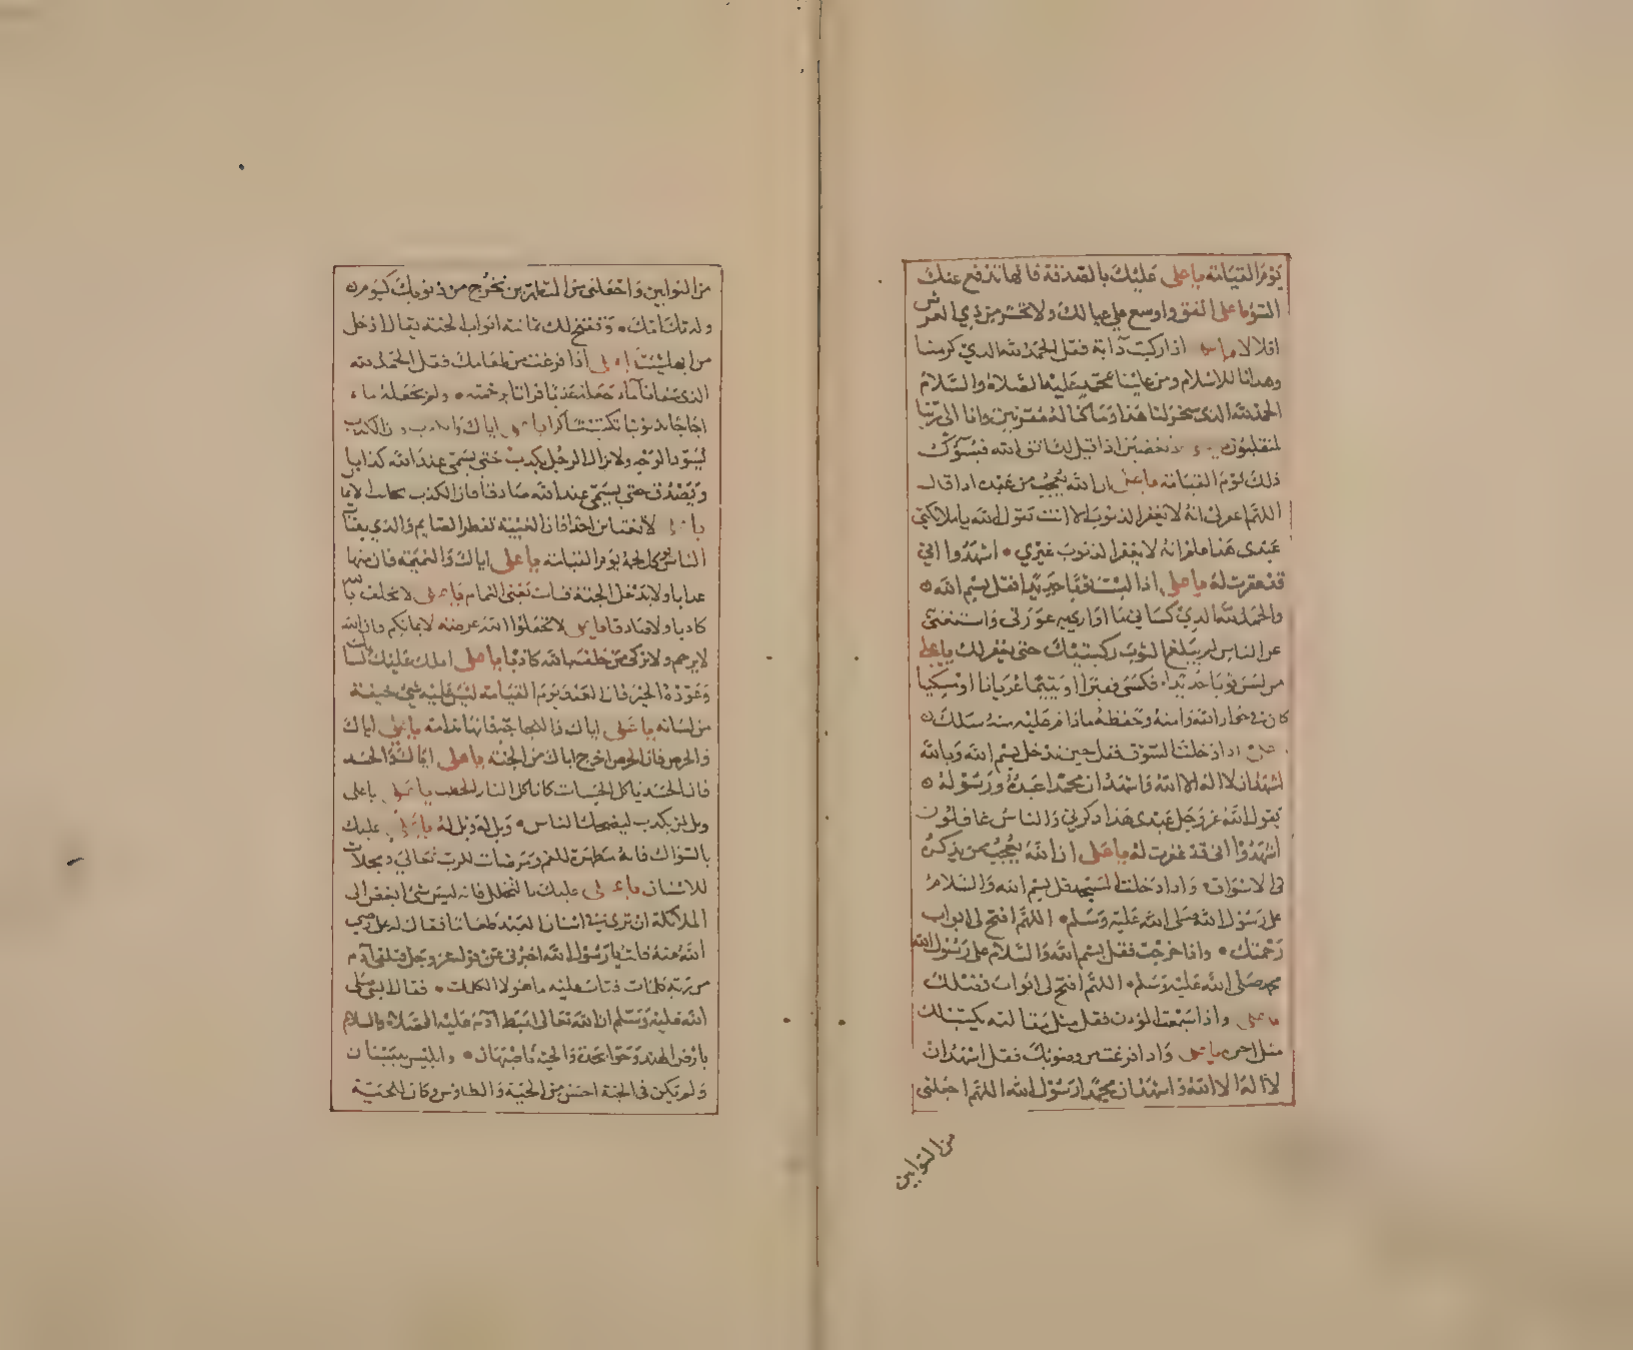 يوم القيامة يا على عليك بالصدقة فانها تدفع عنك
السوء يا على انفق واوسع على عيالك ولا تخش من ذي العرش
اقلالا يا على اذا ركبت دابة فقل الحمد لله الذي كرمنا
وهدانا للاسلام ومن علينا بمحمد عليه الصلاة والسلام
الحمد لله الذي سخر لنا هذا وما كنا له مقرنين وانا الى ربنا
لمنقلبون لا تغضبن اذا قيل لك اتق الله فيسؤك
ذلك يوم القيامة يا على ان الله يعجب من عبده اذا قال
اللهم اغفر لى انه لا يغفر الذنوب الا انت يقول الله يا ملائكتي
عبدى هذا علم انه لا يغفر الذنوب غيري اشهدوا اني
قد غفرت له يا على اذا لبست ثوبا جديدا فقل بسم الله
والحمد لله الذي كساني ما اوارى به عورتى واستغنى
عن الناس لم يبلغ الثوب ركبتيك حتى يغفر لك يا على
من لبس ثوبا جديدا فكسى فقيرا او يتيما عريانا او مسكينا
كان فى جوار الله وامنه وحفظه ماذام عليه منه سلك
على اذا دخلت السوق فقل حين تدخل بسم الله وبالله
اشهد ان لا اله الا الله واشهد ان محمدا عبده ورسوله
يقول الله عز وجل عبدى هذا ذكرني والناس غافلون
اشهدوا انى قد غفرت له يا على ان الله يعجب ممن يذكره
فى الاسواق واذا دخلت المسجد قل بسم الله والسلام
على رسول الله صلى الله عليه وسلم اللهم افتح لى ابواب
رحمتك واذا خرجت فقل بسم الله والسلام على رسول الله
محمد صلى الله عليه وسلم اللهم افتح لى ابواب فضلك
يا على واذا سمعت المؤذن فقل مثل مقالته يكتب لك
مثل اجره يا على واذا فرغت من وضوئك فقل اشهد ان
لا اله الا الله واشهد ان محمدا رسول الله اللهم اجعلنى
من التوابين
من التوابين واجعلنى من المتطهرين تخرج من ذنوبك كيوم
ولدتك امك وتفتح لك ثمانية ابواب الجنة يقال ادخل
من ايها شئت يا على اذا فرغت من طعامك فقل الحمد لله
الذى سقانا ماء عذبا فراتا برحمته ولم يجعله ماء
اجاجا بذنوبنا تكتب شاكرا يا على اياك والكذب فان الكذب
يسود الوجه ولا يزال الرجل يكذب حتى يسمى عند الله كذابا
ويصدق حتى يسمى عند الله صادقا فان الكذب يجانب الايمان
يا على لا تغتابن احدا فان الغيبة تفطر الصايم والذي يغتاب
الناس ياكل لحمه يوم القيامة يا على اياك والنميمة فان منها
عذابا ولا يدخل الجنة قتات يعنى النمام يا على لا تحلف بالله
كاذبا ولا صادقا يا على لا تجعلوا الله عرضة لايمانكم وان الله
لا يرحم ولا يزكى من حلف بالله كاذبا يا على املك عليك لسانك
وعوده الخير فان العبد يوم القيامة ليس عليه شئ خيفة
من لسانه يا على اياك واللجاجة فانها ندامة يا على اياك
والحرص فان الحرص اخرج اباك من الجنة يا على اياك والحسد
فان الحسد ياكل الحسنات كما تاكل النار الحطب يا على يا على
ويل لمن يكذب ليضحك الناس ويل له ويل له يا على عليك
بالسواك فانه مطهرة للفم ومرضات للرب تعالى ومجلات
للاسنان يا على عليك بالتخلل فانه ليس شئ ابغض الى
الملائكة ان ترى فى اسنان العبد طعاما فقال له على رضى
الله عنه قلت يا رسول الله اخبرنى عن قوله عز وجل فتلقى آدم
من ربه كلمات فتاب عليه ما هولا الكلمات فقال النبى صلى
الله عليه وسلم ان الله تعالى اهبط آدم عليه الصلاة والسلام
بارض الهند وحوا بجدة والحية باصبهان وابليس ببيسان
ولم يكن فى الجنة احسن من الحية والطاوس وكان للحية